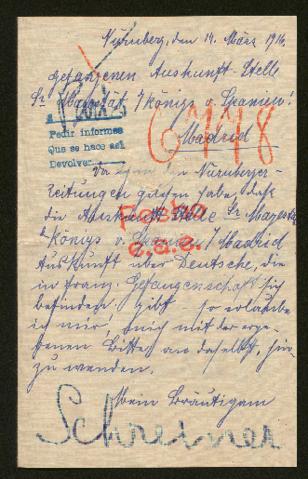 Nürnberg, den 14. März 1916.
gefangenen Auskunft-Stelle
Sr Majestät / Königs v. Spanien!
Pedir informes
Que se hace así
Devolver
Madrid
6778
in den Nürnberger-
Zeitungen gelesen habe, daß
die Auskunft Stelle Sr Majestät
Königs v. Spanien / Madrid
Fecho
e.a.e.
Auskunft über Deutsche, die
in franz. Gefangenschaft sich
befinden, gibt so erlaube
ich mir, mich mit der erge-
benen Bitte an daselbst, hin-
zu wenden.
Mein Bräutigam
Schreiner